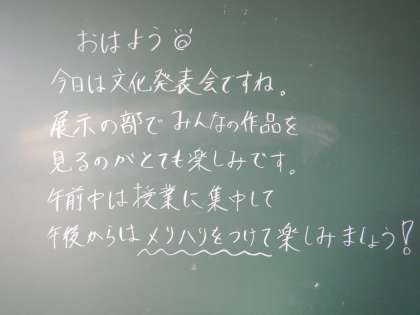 おはよう
今日は文化発表会ですね。
展示の部でみんなの作品を
見るのがとても楽しみです。
午前中は授業に集中して
午後からはメリハリをつけて楽しみましょう!